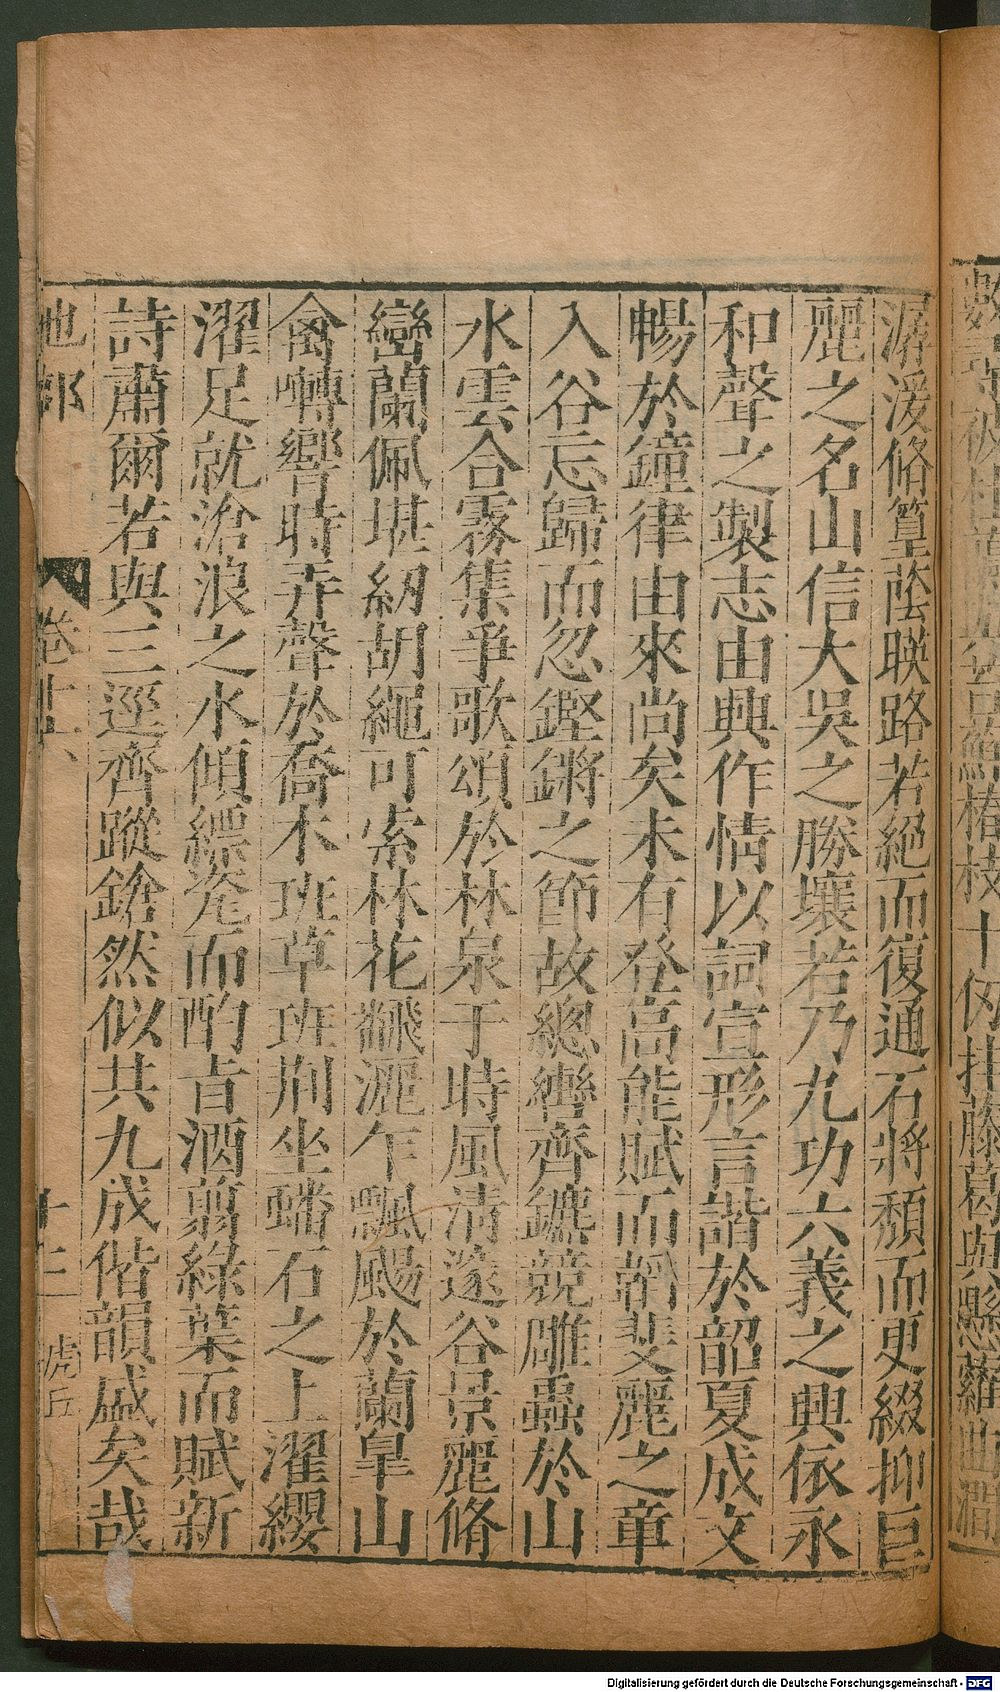 潺湲脩篁蔭暎路若絕而復通石將頽而更綴抑巨
麗之名山信大吳之勝壤若乃九功六義之興依永
和聲之製志由興作情以詞宣形言諧於韶夏成文
暢於鐘律由來尚矣未有登高能賦而韜斐麗之章
入谷忘歸而忽鏗鏘之節故總轡齊鑣競雕蟲於山
水雲合霧集爭歌頌於林泉于時風清邃谷景麗脩
巒蘭佩堪紉胡繩可索林花翻灑乍飄颺於蘭臯山
禽囀響時弄聲於喬木班草班荆坐蟠石之上濯纓
濯足就滄浪之水傾縹瓷而酌旨酒剪綠葉而賦新
詩肅爾若與三逕齊蹤鏘然似共九成偕韻盛矣哉
卷十六
十三
虎丘
數 被 椿枝十仞挂藤葛與懸蘿曲澗
Digitalisierung gefördert durch die Deutsche Forschungsgemeinschaft - DFG